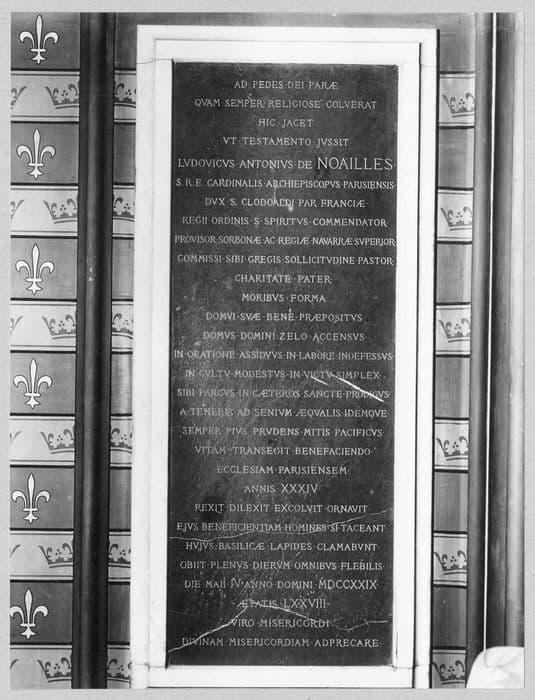 AD PEDES DEI PARÆ
QVAM SEMPER RELIGIOSE COLVERAT
HIC JACET
VT TESTAMENTO JVSSIT
LVDOVICVS ANTONIVS DE NOAILLES
S·R·E· CARDINALIS ARCHIEPISCOPVS PARISIENSIS
DVX S· CLODOALDI PAR FRANCIÆ
REGII ORDINIS S· SPIRITVS COMMENDATOR
PROVISOR SORBONÆ AC REGIÆ NAVARRÆ SVPERIOR
COMMISSI SIBI GREGIS SOLLICITVDINE PASTOR
CHARITATE PATER
MORIBVS FORMA
DOMVI SVÆ BENE PRÆPOSITVS
DOMVS DOMINI ZELO ACCENSVS
IN ORATIONE ASSIDVVS IN LABORE INDEFESSVS
IN CVLTV MODESTVS IN VICTV SIMPLEX
SIBI PARCVS IN CÆTEROS SANCTE PRODIGVS
A TENERIS AD SENIVM ÆQVALIS IDEMQVE
SEMPER PIVS PRVDENS MITIS PACIFICVS
VITAM TRANSEGIT BENEFACIENDO
ECCLESIAM PARISIENSEM
ANNIS XXXIV
REXIT DILEXIT EXCOLVIT ORNAVIT
EJVS BENEFICIENTIAM HOMINES SI TACEANT
HVJVS BASILICÆ LAPIDES CLAMABVNT
OBIIT PLENVS DIERVM OMNIBVS FLEBILIS
DIE MAII IV ANNO DOMINI MDCCXXIX
ÆTATIS LXXVIII
VIRO MISERICORDI
DIVINAM MISERICORDIAM ADPRECARE